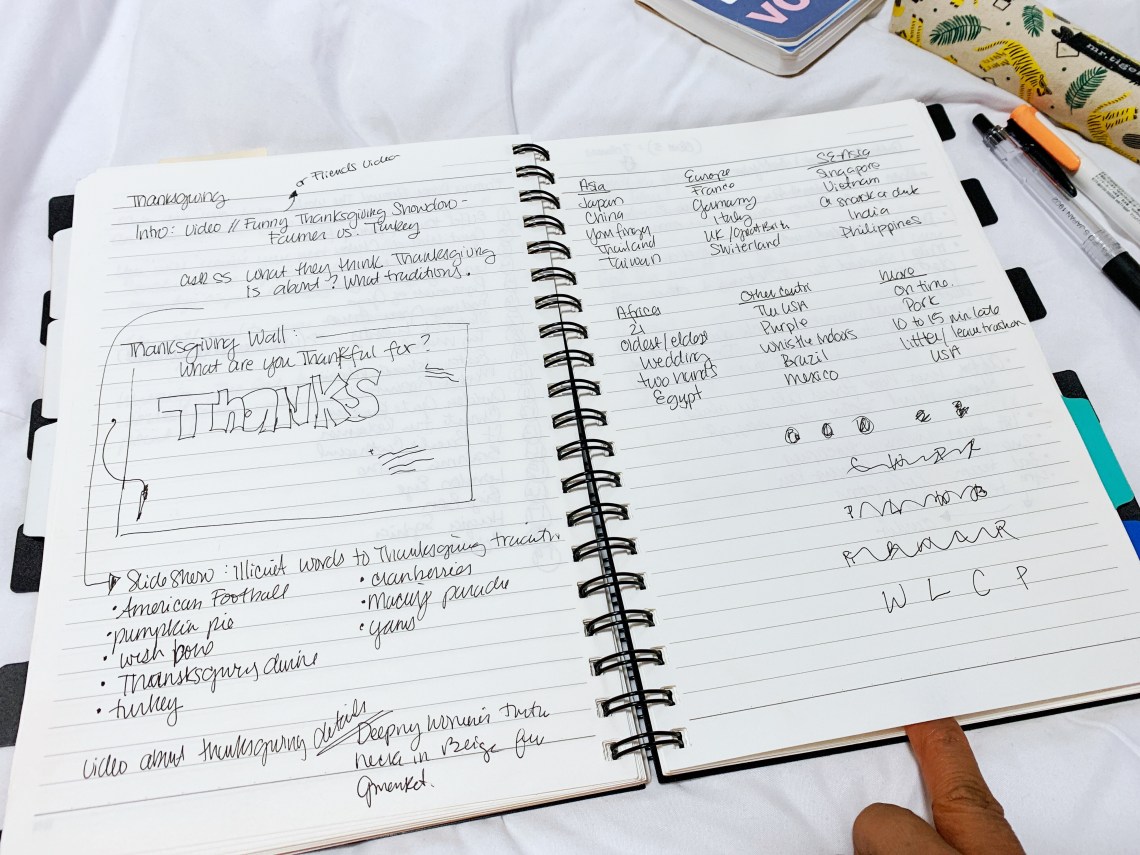 Thanksgiving
or Friends video
Intro: Video // Funny Thanksgiving Showdown -
Farmer vs. Turkey
ask ss what they think Thanksgiving
is about? What traditions.
Thanksgiving Wall:
What are you Thankful for?
ThaNKS
Slide Show: illicit words to Thanksgiving
• American Football
• pumpkin pie
• wish bone
• Thanksgiving
• turkey
• cranberries
• Macy's parade
• yams
video about thanksgiving details
Women's
neck in Beige
Gmarket.
Asia
Japan
China
Thailand
Taiwan
Europe
France
Germany
Italy
UK/Great
Switerland
SE Asia
Singapore
Vietnam
a snork a
India
Philippines
Africa
21
oldest/eldest
Wedding
two hands
Egypt
Other
The USA
Purple
whistle indoors
Brazil
Mexico
more
on time.
Pork
10 to 15 min late
litter/leave trash on
USA
W L C P
VO
mr.tiger